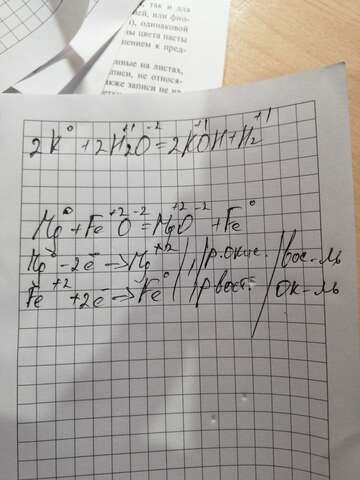 так и для
ей, или фио-
), одинаковой
ды цвета пасты
нением к пред-
нные на листах,
писи, не относя-
акже записи не на
2K⁰ + 2H₂⁺¹O⁻² = 2K⁺¹OH + H₂⁺¹
Mg⁰ + Fe⁺²O⁻² = Mg⁺²O⁻² + Fe⁰
Mg⁰ - 2e⁻ → Mg⁺² | 1 | пр. окис. / вос-ль
Fe⁺² + 2e⁻ → Fe⁰ | 1 | пр вост. / ок-ль